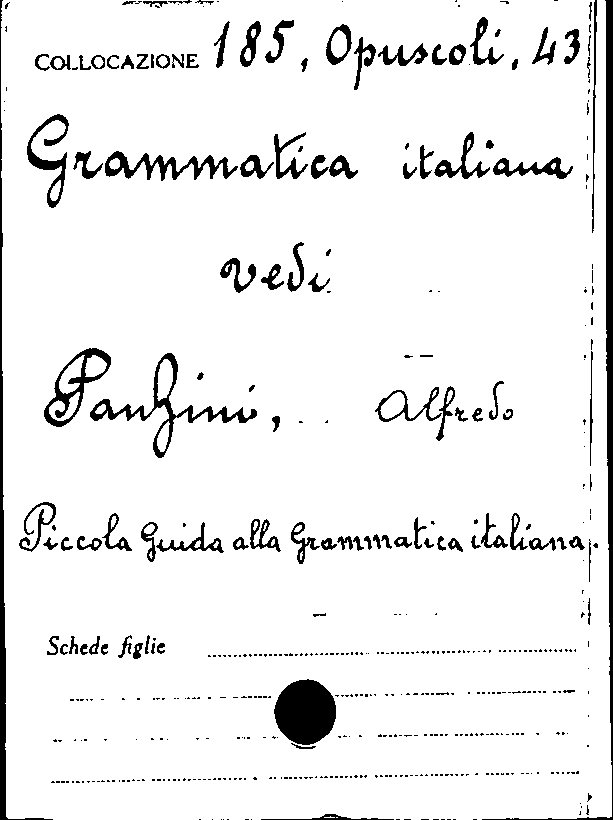 COLLOCAZIONE 185, Opuscoli, 43
Grammatica italiana
vedi
Panzini, Alfredo
Piccola Guida alla Grammatica italiana.
Schede figlie